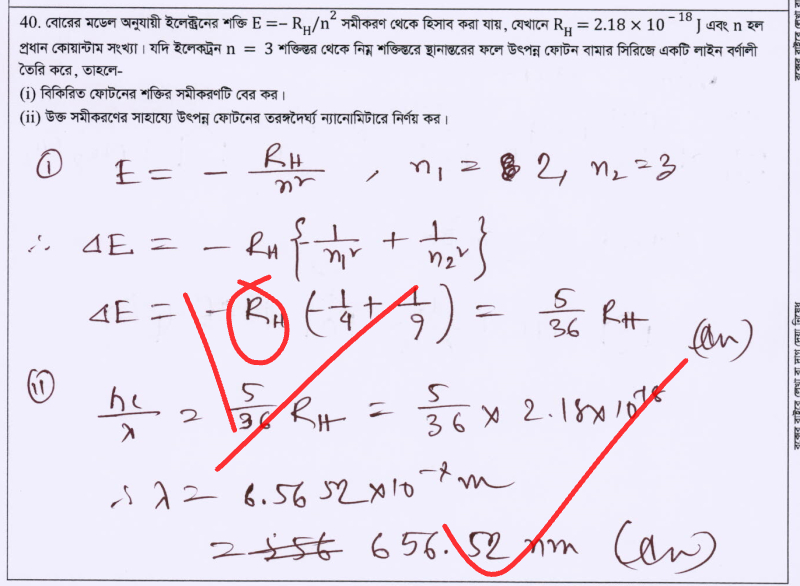 40. বোরের মডেল অনুযায়ী ইলেক্ট্রনের শক্তি E =– R_H/n² সমীকরণ থেকে হিসাব করা যায়, যেখানে R_H = 2.18 × 10⁻¹⁸ J এবং n হল
প্রধান কোয়ান্টাম সংখ্যা। যদি ইলেকট্রন n = 3 শক্তিস্তর থেকে নিম্ন শক্তিস্তরে স্থানান্তরের ফলে উৎপন্ন ফোটন বামার সিরিজে একটি লাইন বর্ণালী
তৈরি করে, তাহলে-
(i) বিকিরিত ফোটনের শক্তির সমীকরণটি বের কর।
(ii) উক্ত সমীকরণের সাহায্যে উৎপন্ন ফোটনের তরঙ্গদৈর্ঘ্য ন্যানোমিটারে নির্ণয় কর।
(i) E = – R_H/n² , n₁ = 2, n₂ = 3
∴ ΔE = – R_H {–1/n₁² + 1/n₂²}
ΔE = – R_H (–1/4 + 1/9) = 5/36 R_H
(An)
(ii) hc/λ = 5/36 R_H = 5/36 × 2.18×10⁻¹⁸
∴ λ = 6.5652×10⁻⁷ m
= 656.52 nm (An)